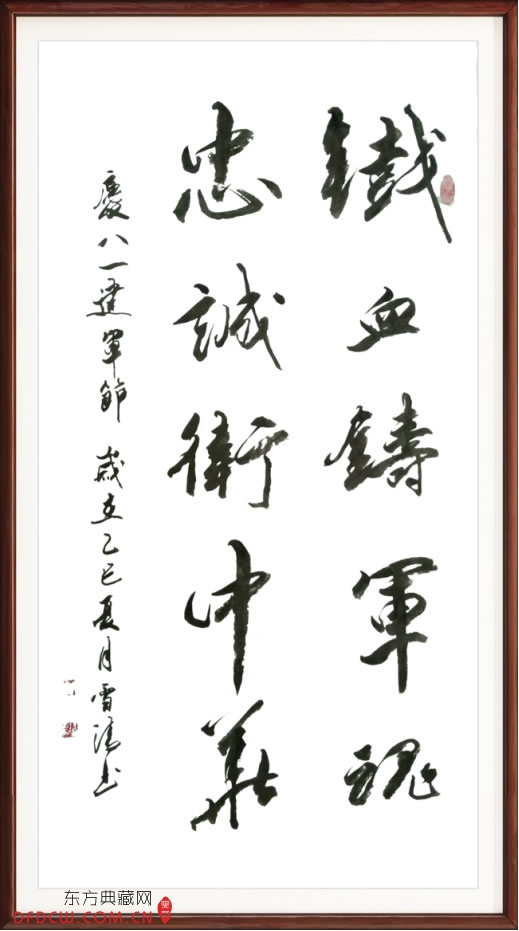 鐵血鑄軍魂
忠誠衛中華
慶八一建軍節 歲在乙巳夏月雪清書
东方典藏网
DFDCW.COM.CN